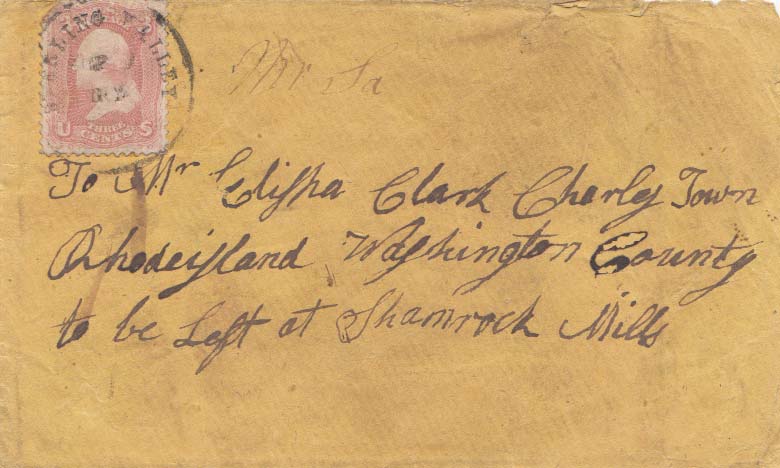 VALLEY
U THREE CENTS S
Mr Sa
To Mr Elisha Clark Charles Town
Rhodeisland Washington County
to be Left at Shamrock Mills